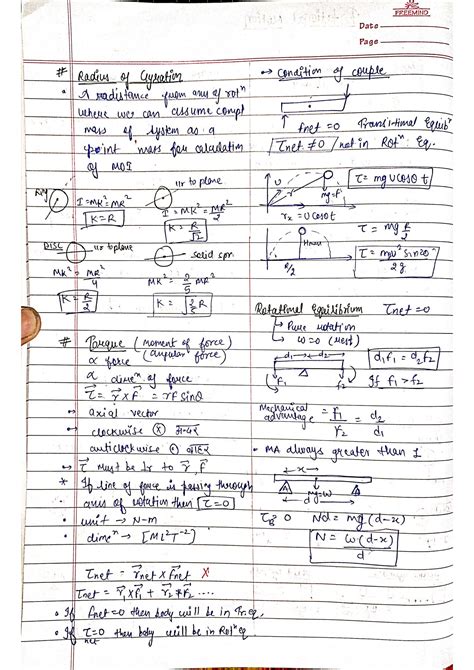 FREEMIND
Date
Page
# Radius of Gyration
• A radistance from axis of rotⁿ
where we can assume compt
mass of system as a
point mass for calculation
of MOI
Ring
I = MK² = MR²
K = R
ur to plane
I = MK² = MR²/2
K = R/√2
DISC
ur to plane
MK² = MR²/4
K = R/2
solid spr
MK² = 2/5 MR²
K = √2/5 R
# Torque (moment of force)
(angular force)
∝ force
∝ dimeⁿ of force
τ⃗ = r⃗ × F⃗ = rF sinθ
→ axial vector
→ clockwise ⊗ अन्दर
anticlockwise ⊙ बाहर
↔ τ⃗ must be ⊥r to r⃗, F⃗
* If line of force is passing through
axis of rotation then τ = 0
• unit → N-m
• dimeⁿ → [ML²T⁻²]
τnet = r⃗net × F⃗net X
τnet = r⃗₁×F⃗₁ + r⃗₂×F⃗₂ ....
• If Fnet = 0 then body will be in Tr. eq.
• If τnet = 0 then body will be in Rotⁿ eq.
→ Condition of couple
fnet = 0 Transitional Equibʳ
τnet ≠ 0 / not in Rotⁿ. Eq.
U
r
mg = F
rx = u cosθ t
τ = mg u cosθ t
Hmax
R/2
τ = mg R/2
τ = mu² sin2θ / 2g
Rotational Equilibrium τnet = 0
→ Pure rotation
→ ω = 0 (rest)
d₁ d₂
F₁ F₂
d₁F₁ = d₂F₂
If F₁ > F₂
Mechanical advantage = F₁/F₂ = d₂/d₁
• MA always greater than 1
x
A B
mg = W
d
τB = 0 Nd = mg(d-x)
N = W(d-x)/d